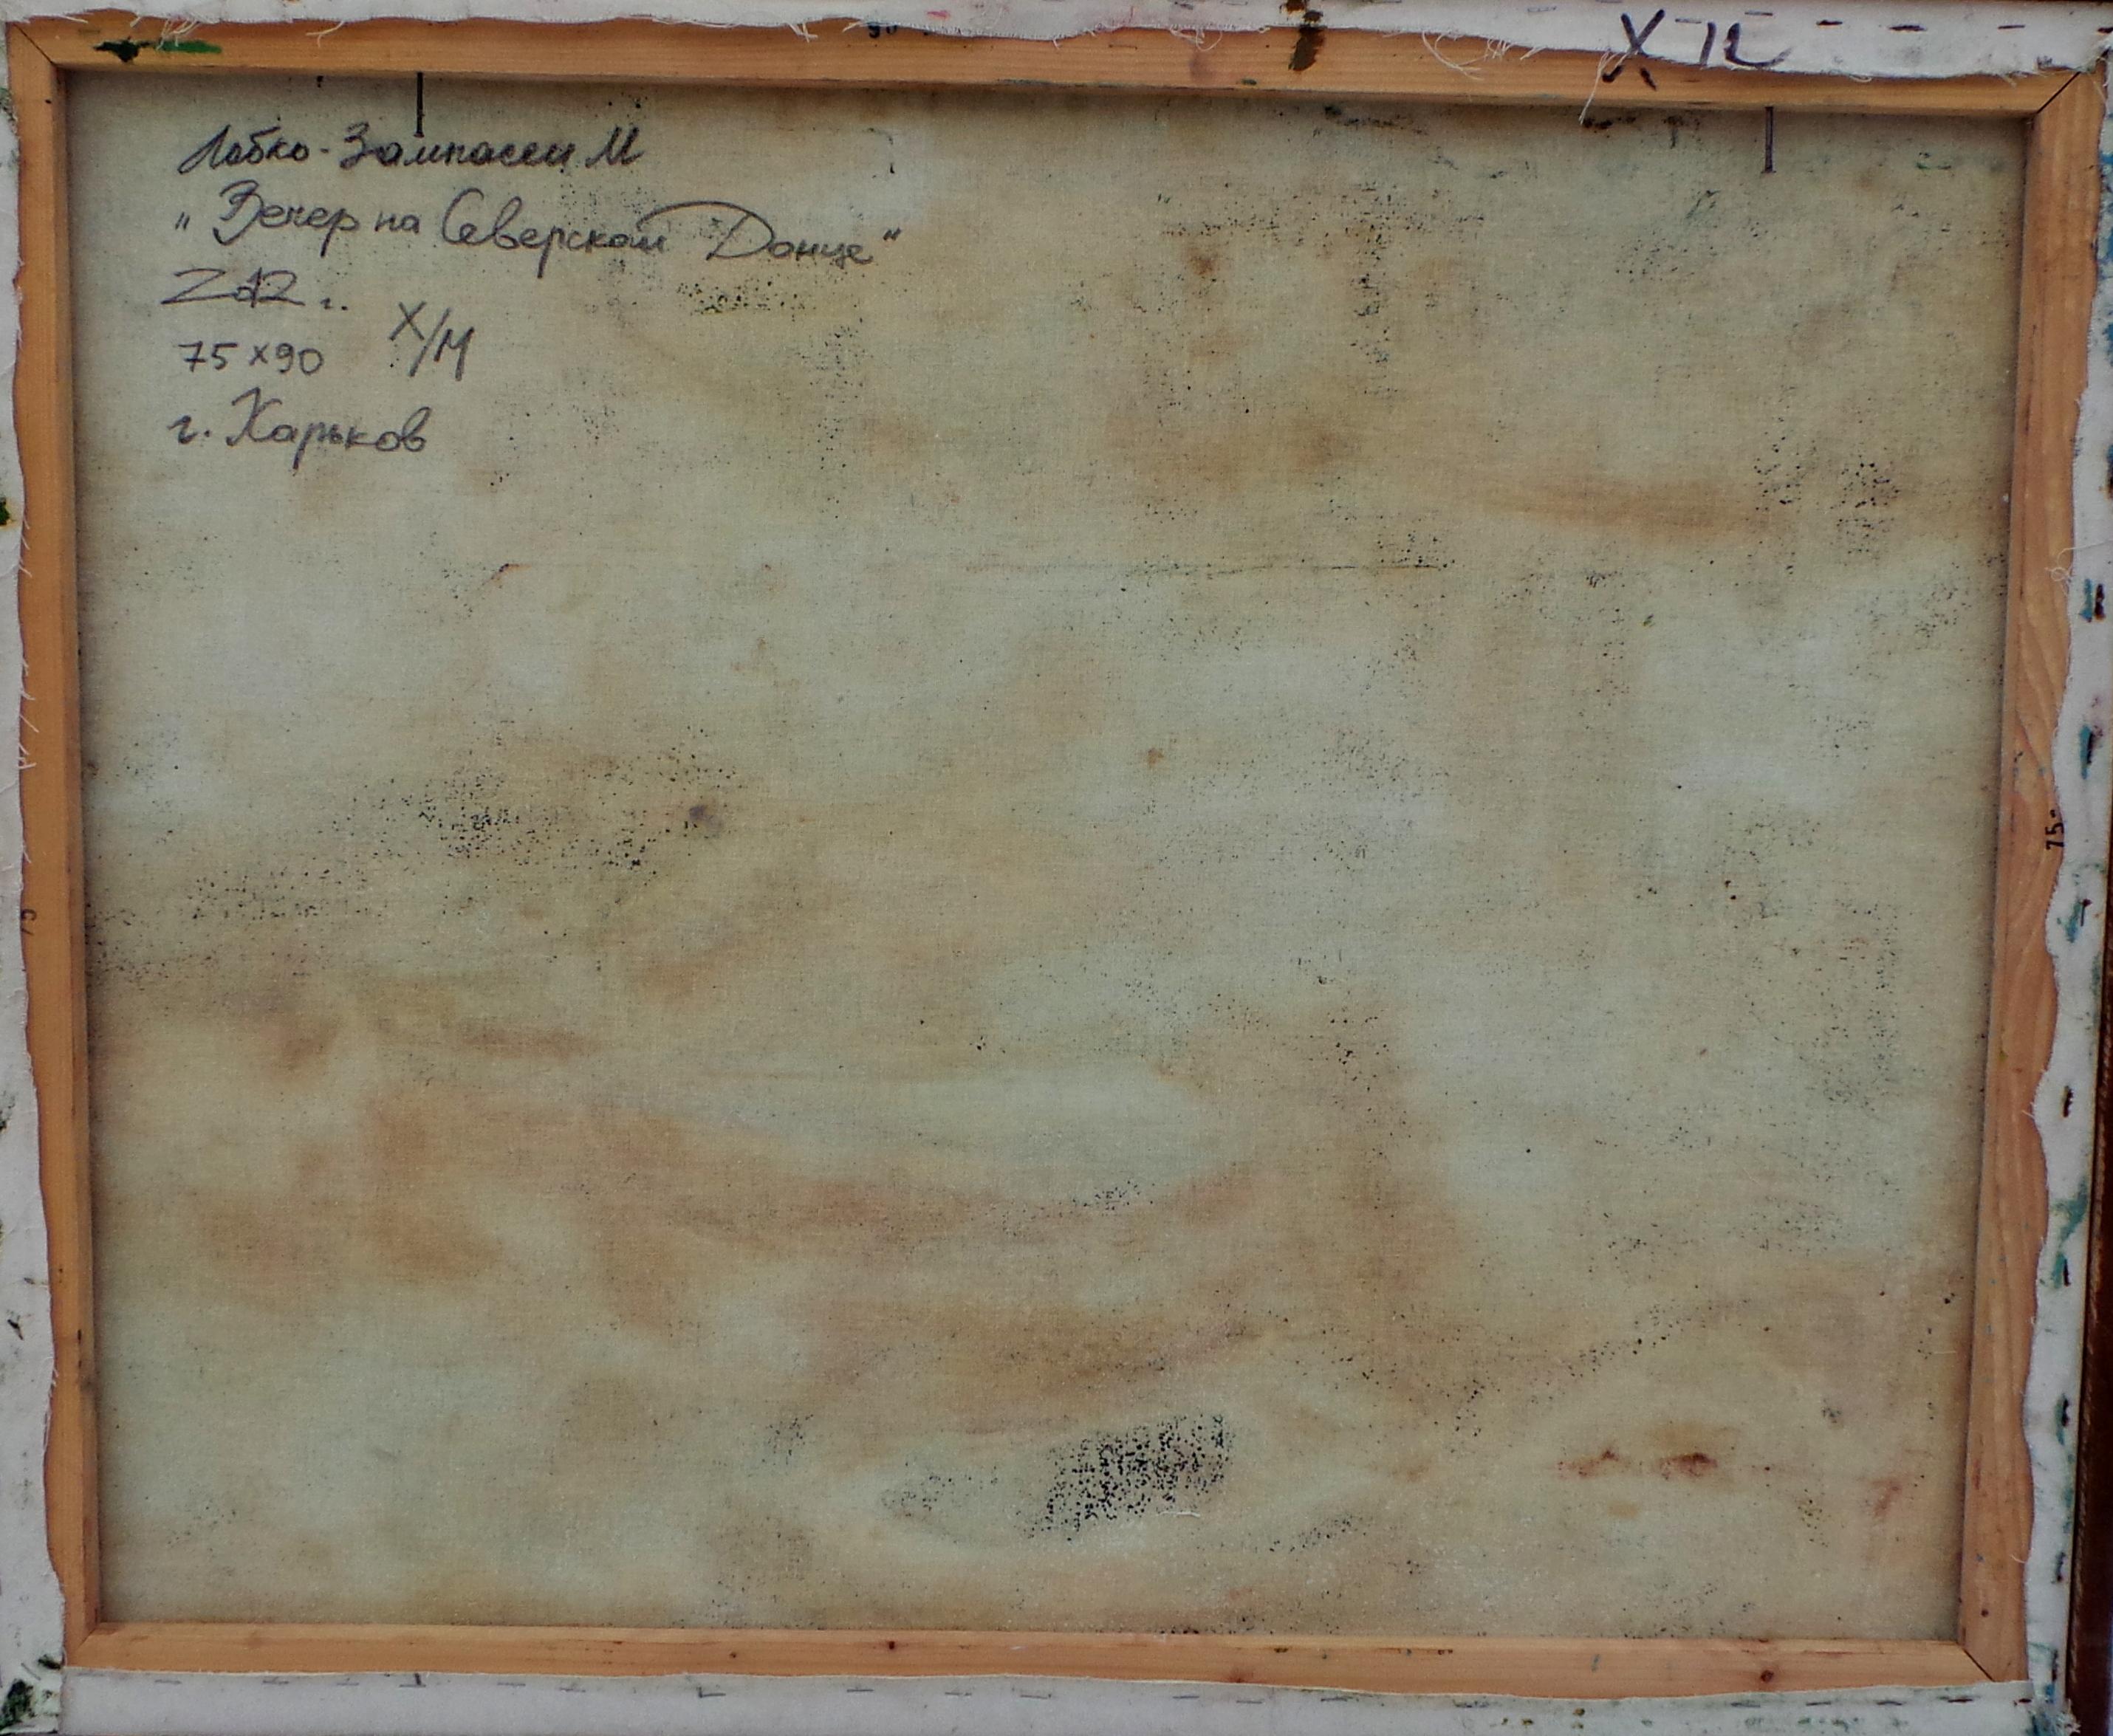 90
X 12
Лобко-Зампасси М
„Вечер на Северском Донце"
2012 г.
75х90 х/м
г. Харьков
75
75